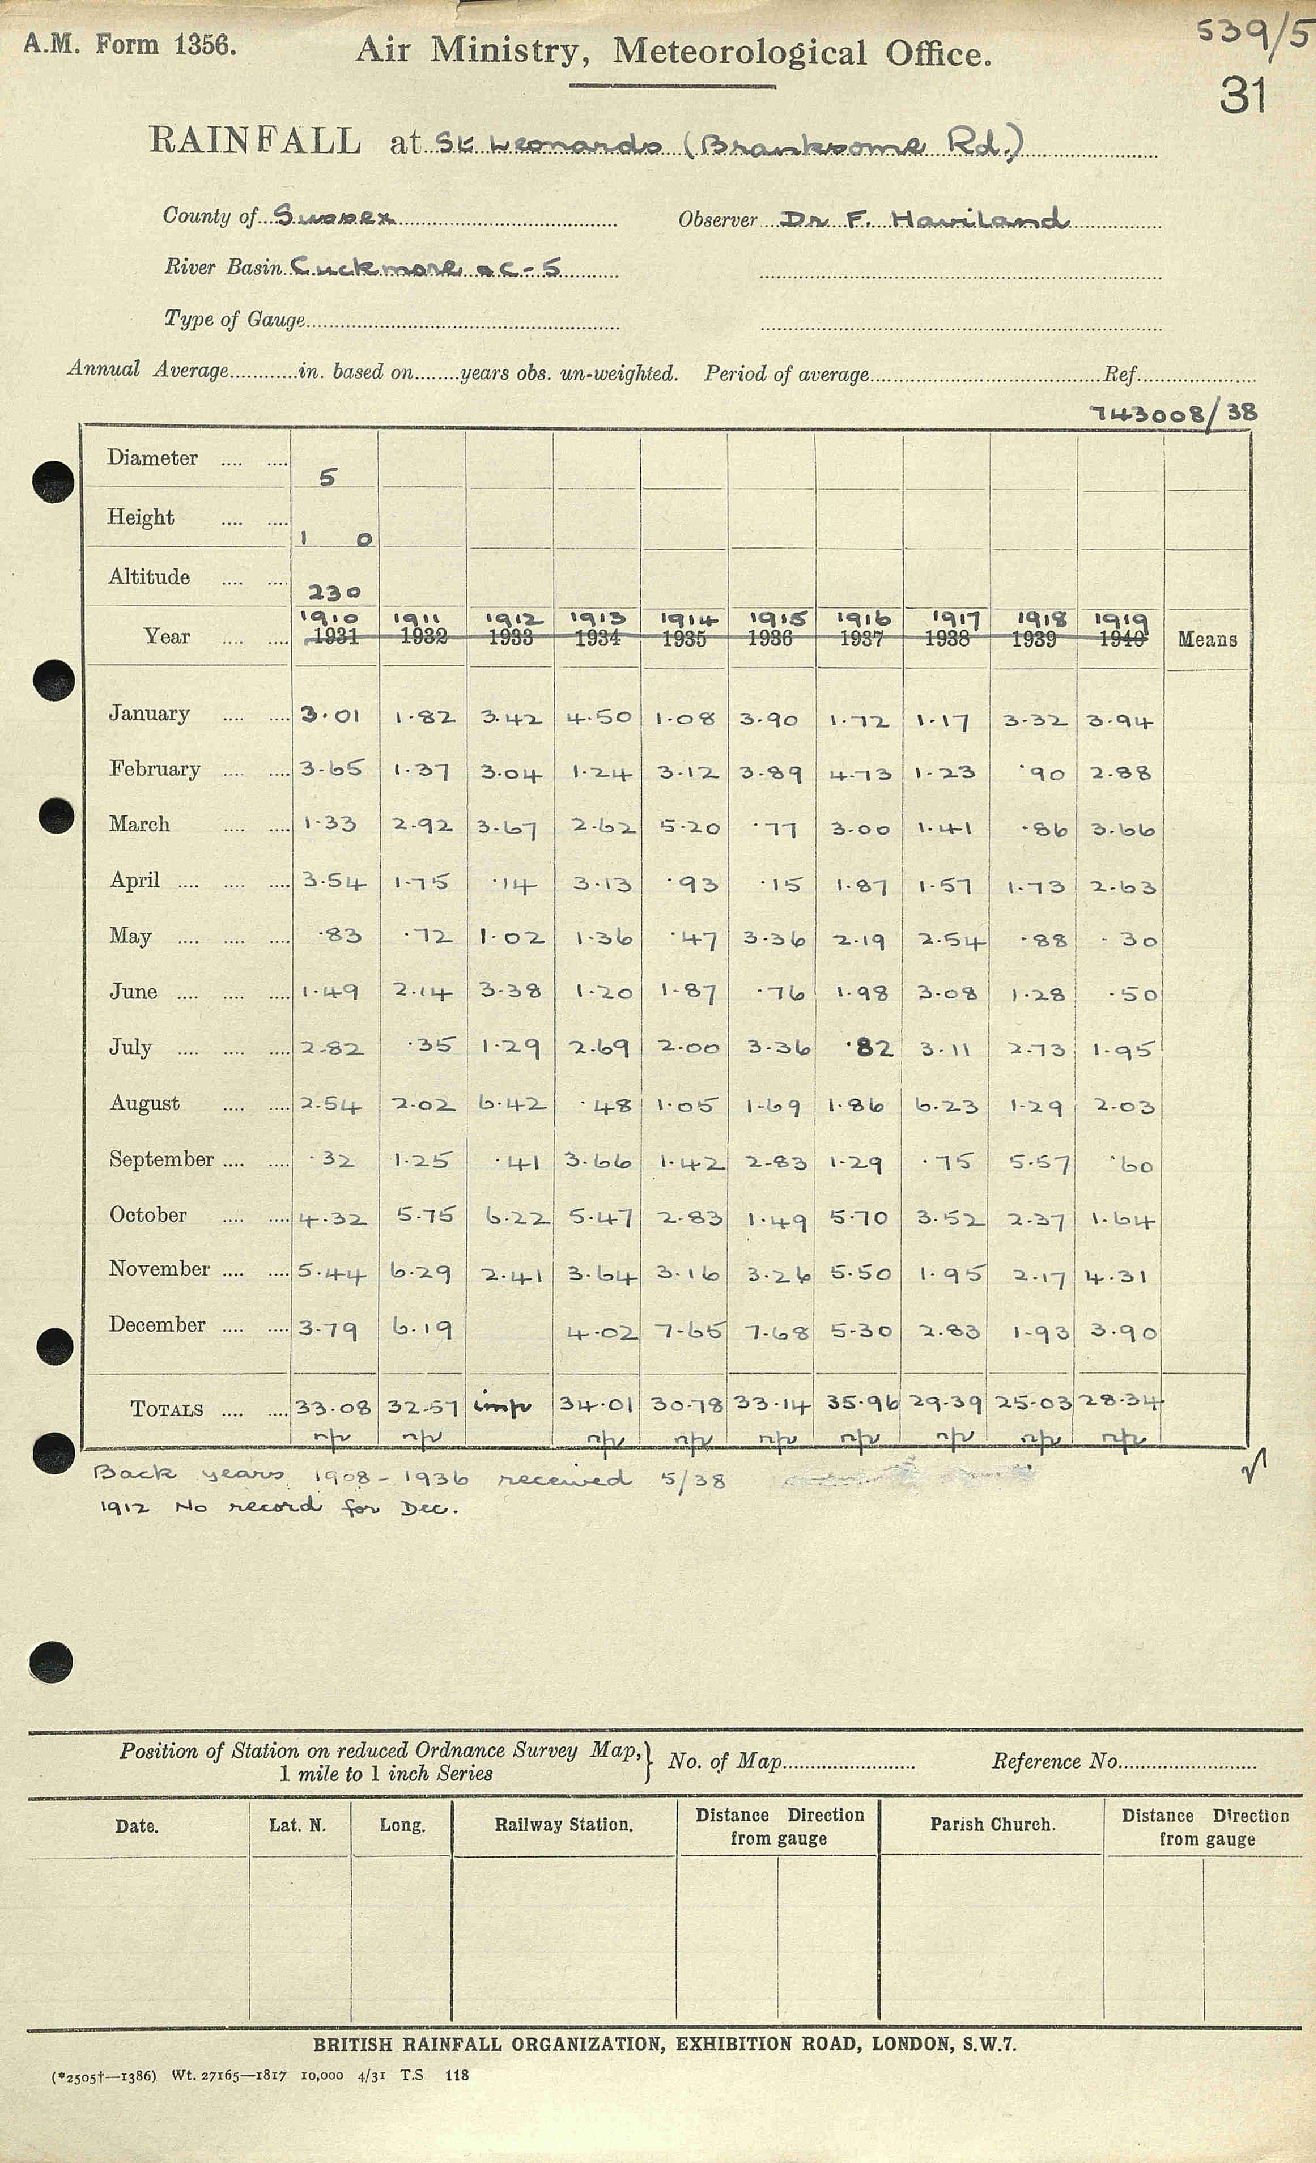 539/5
A.M. Form 1356.
Air Ministry, Meteorological Office.
31
RAINFALL at St Leonards (Branksome Rd.)
County of Sussex Observer Dr F. Haviland
River Basin Cuckmere &c - 5
Type of Gauge
Annual Average in. based on years obs. un-weighted. Period of average Ref.
743008/38
Diameter 5
Height 1 0
Altitude 230
1910 1911 1912 1913 1914 1915 1916 1917 1918 1919
Year 1931 1932 1933 1934 1935 1936 1937 1938 1939 1940 Means
January 3.01 1.82 3.42 4.50 1.08 3.90 1.72 1.17 3.32 3.94
February 3.65 1.37 3.04 1.24 3.12 3.89 4.73 1.23 .90 2.88
March 1.33 2.92 3.67 2.62 5.20 .77 3.00 1.41 .86 3.66
April 3.54 1.75 .14 3.13 .93 .15 1.87 1.57 1.73 2.63
May .83 .72 1.02 1.36 .47 3.36 2.19 2.54 .88 .30
June 1.49 2.14 3.38 1.20 1.87 .76 1.98 3.08 1.28 .50
July 2.82 .35 1.29 2.69 2.00 3.36 .82 3.11 2.73 1.95
August 2.54 2.02 6.42 .48 1.05 1.69 1.86 6.23 1.29 2.03
September .32 1.25 .41 3.66 1.42 2.83 1.29 .75 5.57 .60
October 4.32 5.75 6.22 5.47 2.83 1.49 5.70 3.52 2.37 1.64
November 5.44 6.29 2.41 3.64 3.16 3.26 5.50 1.95 2.17 4.31
December 3.79 6.19 4.02 7.65 7.68 5.30 2.83 1.93 3.90
TOTALS 33.08 32.57 imp 34.01 30.78 33.14 35.96 29.39 25.03 28.34
np np np np np np np np np
Back years 1908-1936 received 5/38
1912 No record for Dec.
Position of Station on reduced Ordnance Survey Map,} No. of Map Reference No.
1 mile to 1 inch Series
Date. Lat. N. Long. Railway Station. Distance Direction from gauge Parish Church. Distance Direction from gauge
BRITISH RAINFALL ORGANIZATION, EXHIBITION ROAD, LONDON, S.W.7.
(*2505†—1386) Wt. 27165—1817 10,000 4/31 T.S 118